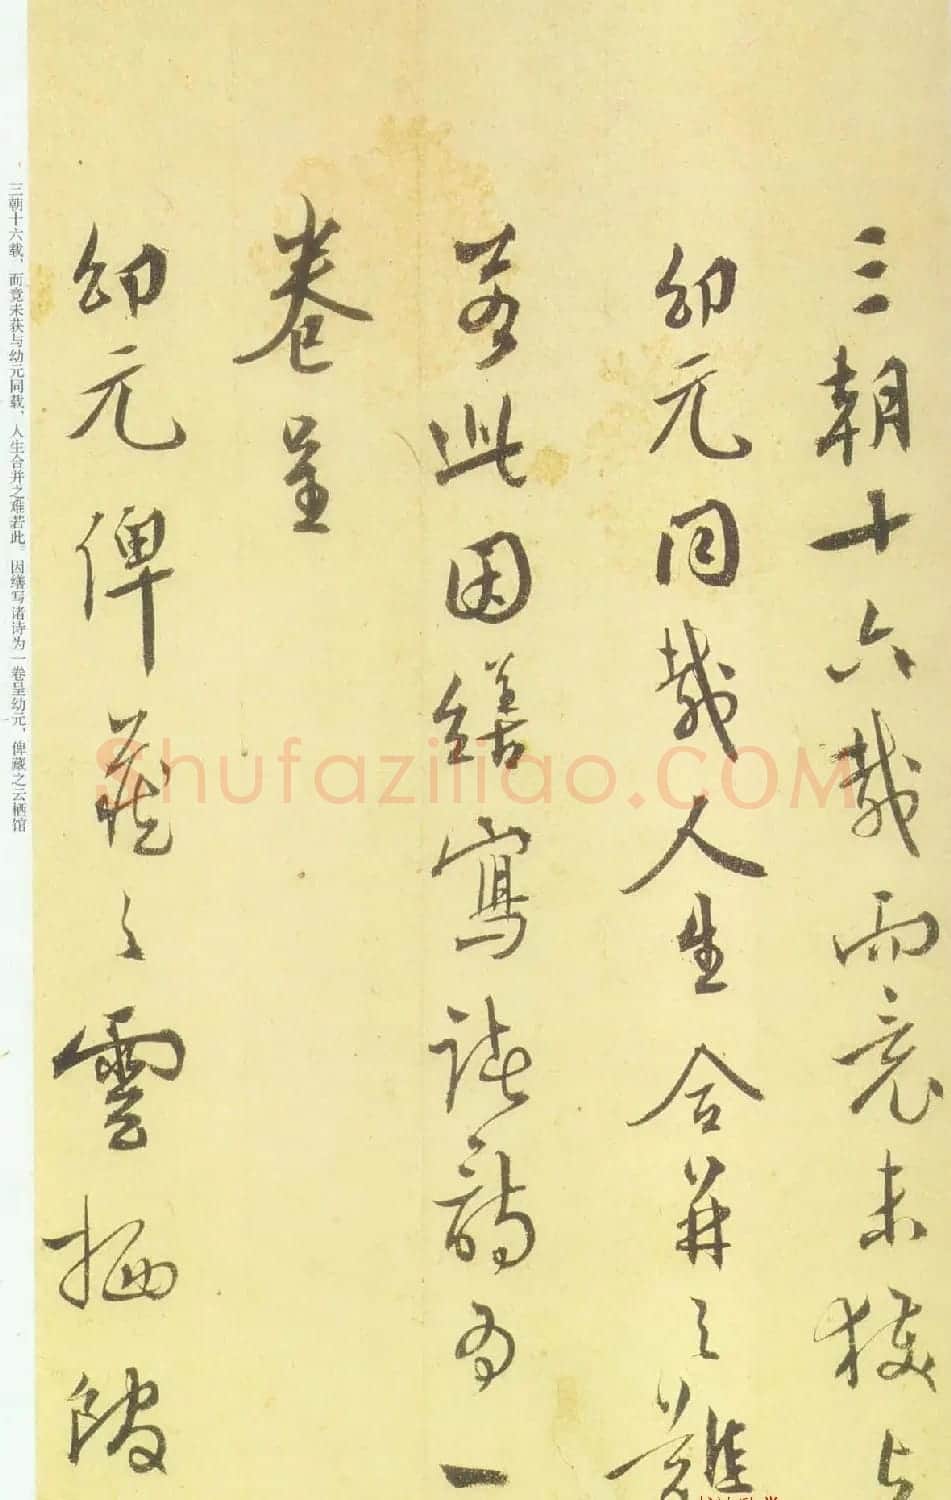 三朝十六載而竟未獲与
幼元同載人生合并之難
若此因繕寫諸詩为一
卷呈
幼元俾藏之雲栖館
三朝十六载，而竟未获与幼元同载，人生合并之难若此。因缮写诸诗为一卷呈幼元，俾藏之云栖馆
Shufaziliao.COM